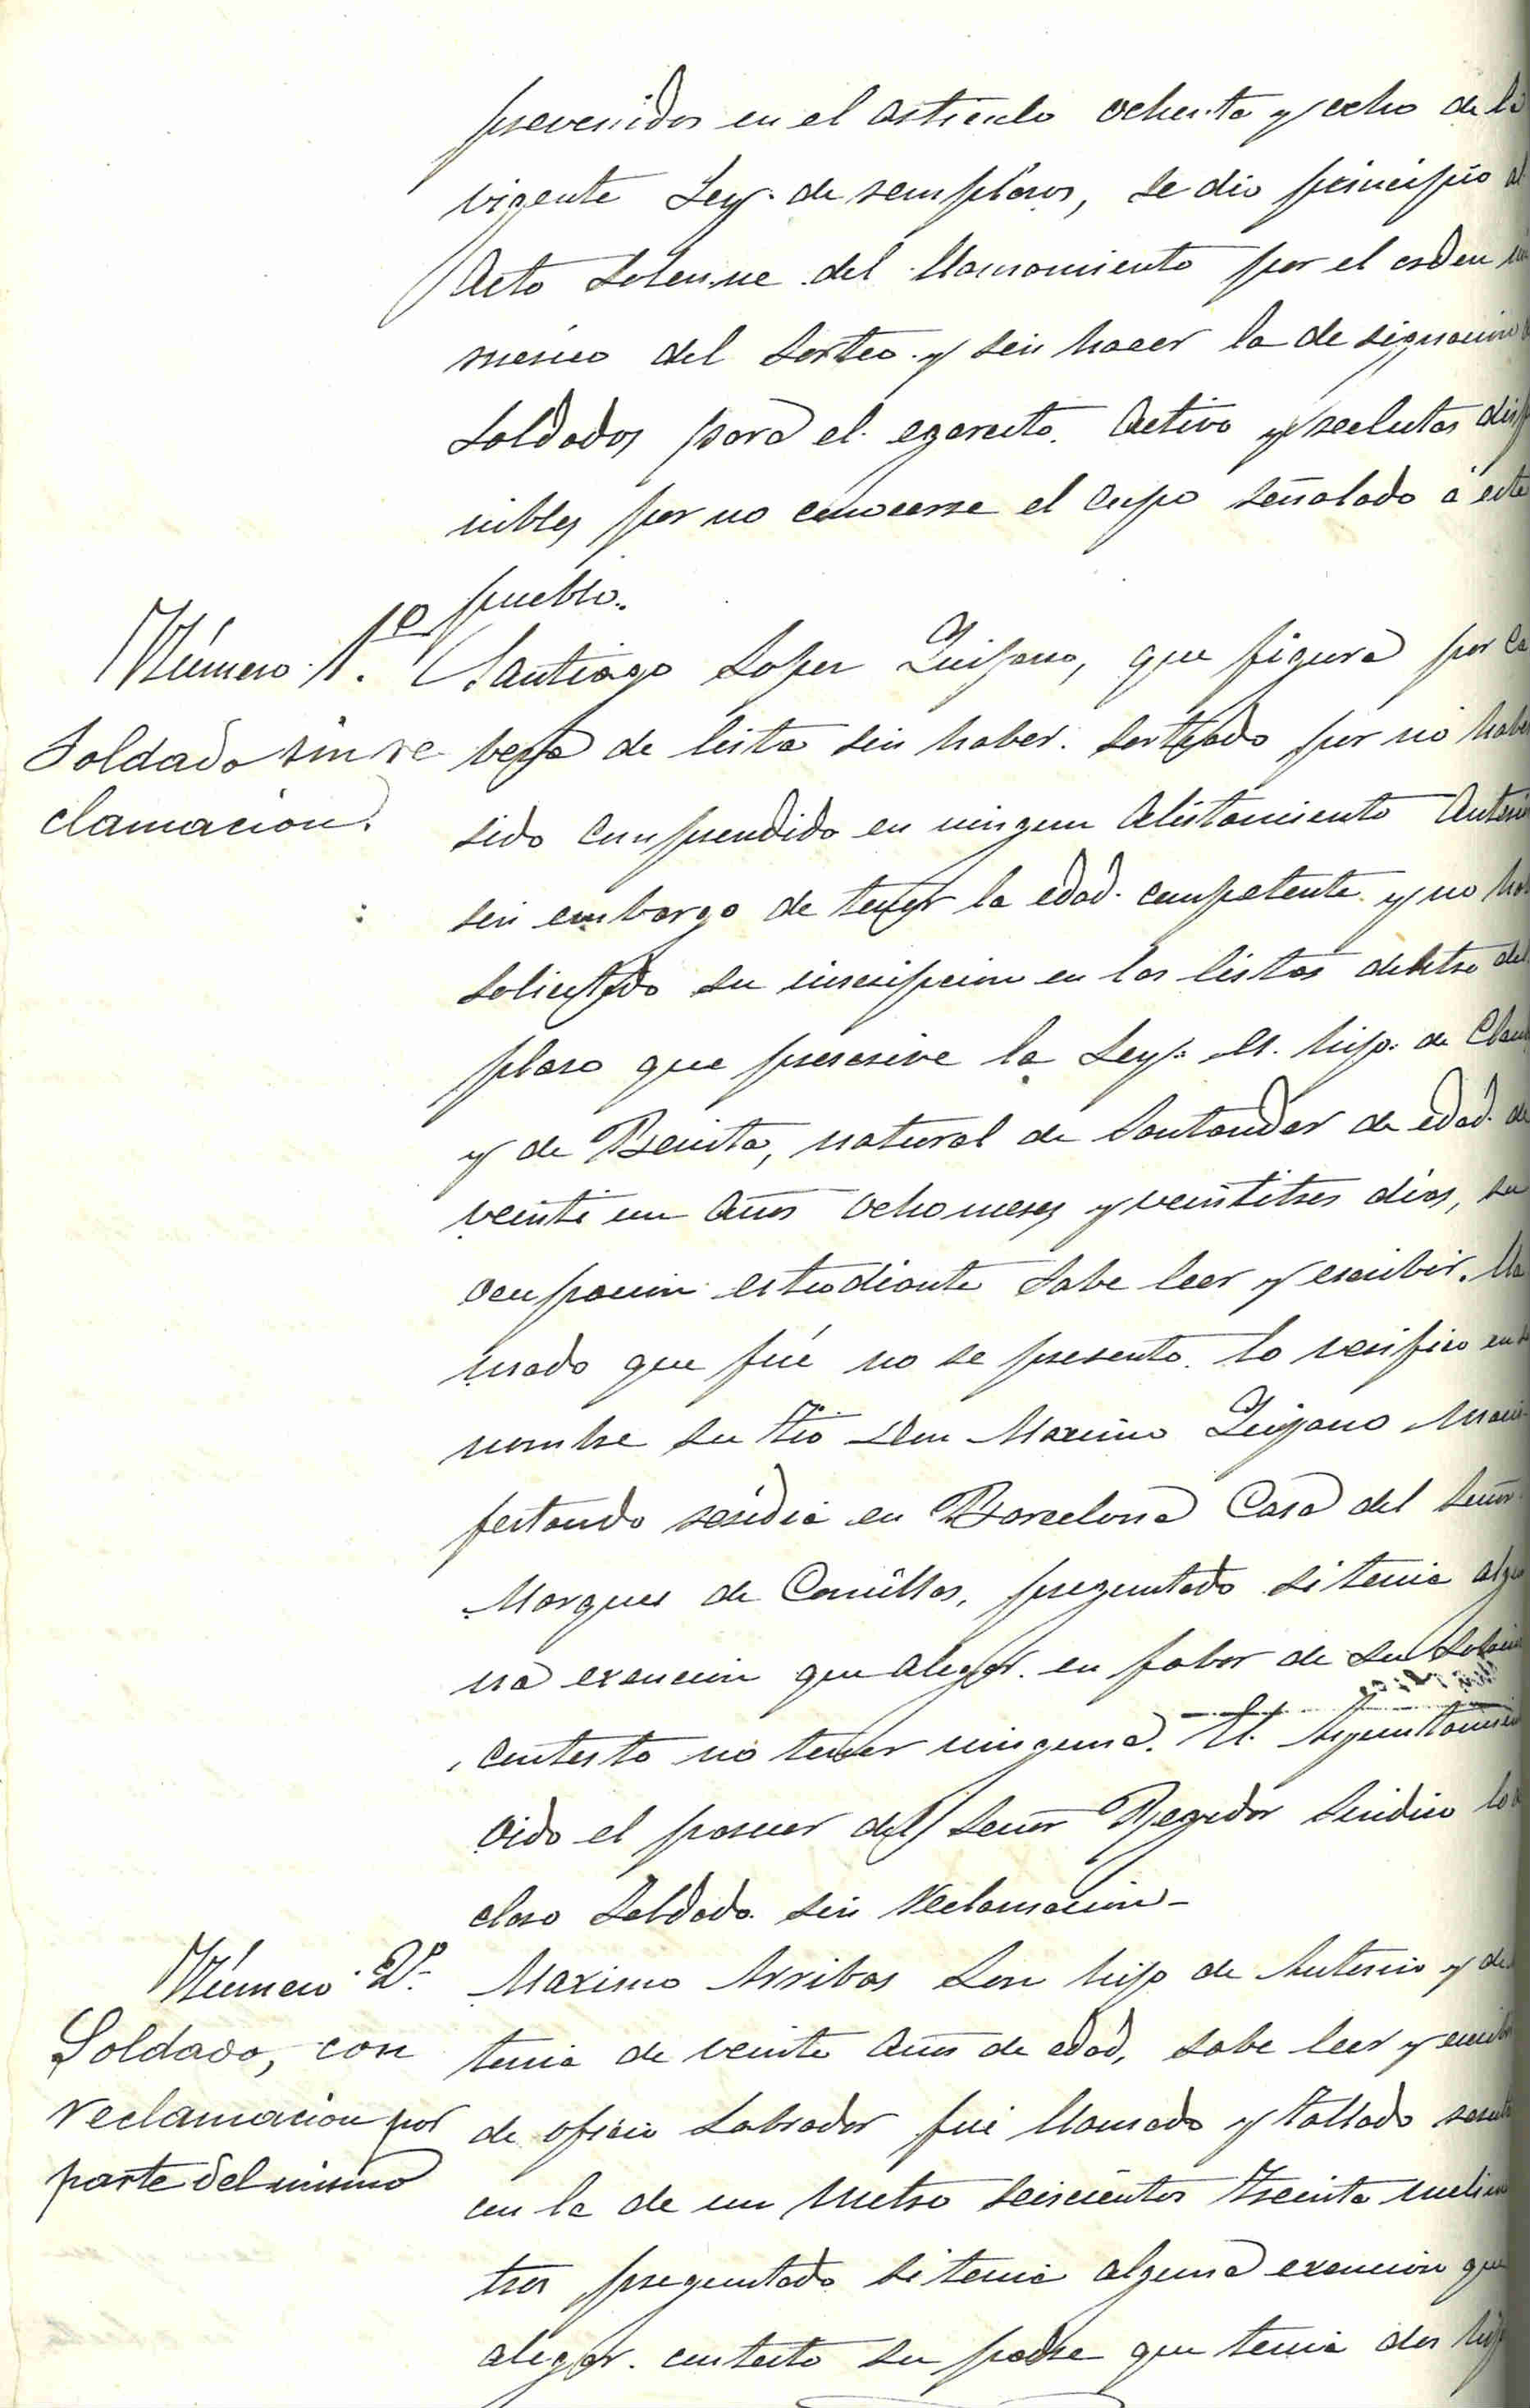 prevenidos en el articulo ochenta y ocho de la
vigente Ley de remplazos, se dio principio al
Acto Solenne del llamamiento por el orden nu
merico del Sorteo y sin hacer la designacion
Soldados para el egercito Activo y reclutas disp
nibles por no conocerse el cupo señalado á este
pueblo.
Número 1º
Santiago Lopez Quijano, que figura por ca
Soldado sin re
clamacion.
beza de lista sin haber sorteado por no haber
sido comprendido en ningun Alistamiento Anterior
sin embargo de tener la edad competente y no hab
solicitado su inscripcion en las listas dentro del
plazo que prescrive la Ley. Es hijo de Claud
y de Benita, natural de Santander de edad de
veinti un Años Ocho meses y veintitres dias, su
ocupacion estudiante Sabe leer y escribir. lla
mado que fué no se presento lo verifico en s
nombre su tio Don Maximo Quijano Mani
festando residia en Barcelona Casa del Señor
Marques de Comillas, preguntado si tenia algu
na exencion que alegar en fabor de su Sobrino
contesto no tener ninguna. El Ayuntamien
Oido el parecer del Señor Regidor Sindico lo
claro Soldado sin Reclamacion-
Número 2º
Soldado, con
reclamacion por
parte del mismo
Maximo Arribas Lon hijo de Antonio y de
tenia de veinte Años de edad, sabe leer y escrib
de oficio Labrador fué llamado y tallado resulto
con la de un Metro Seiscientos treinta milime
tros preguntado si tenia alguna exencion que
alegar contesto su padre que tenia dos hijo